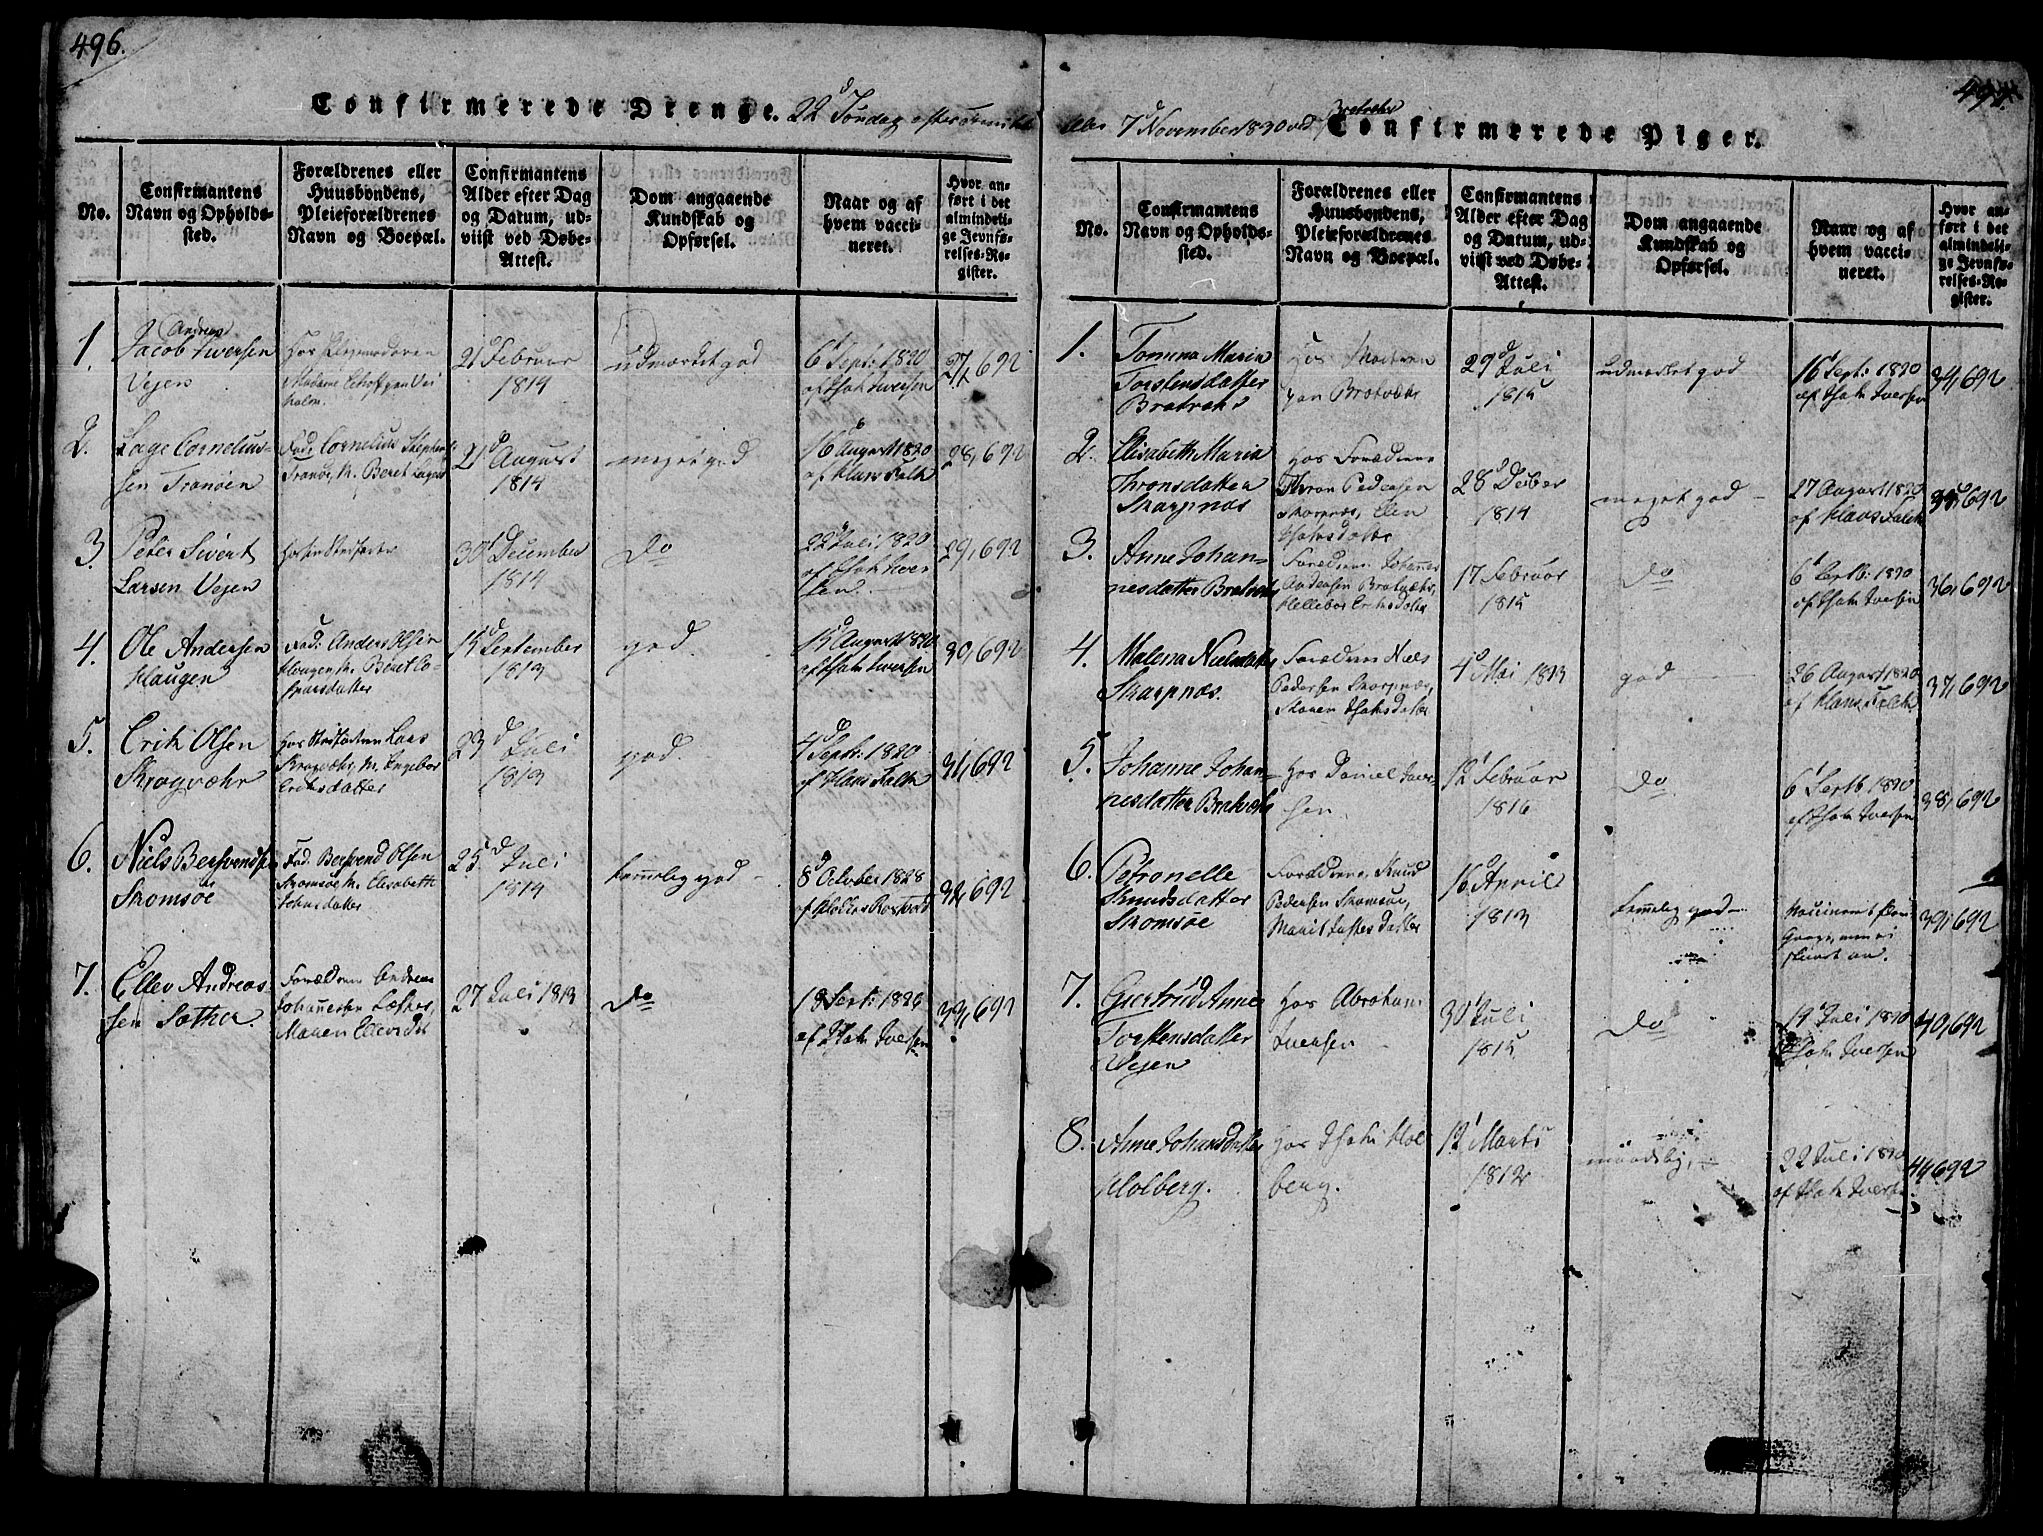 496.
Confirmerede Drenge. 22d Søndag efter
No.
Confirmantens
Navn og Opholds-
sted.
Forældrenes eller
Huusbondens,
Pleieforældrenes
Navn og Boepæl.
Confirmantens
Alder efter Dag
og Datum, ud-
viist ved Døbe-
Attest.
Dom angaaende
Kundskab og
Opførsel.
Naar og af
hvem vacci-
neret.
Hvor an-
ført i det
almindeli-
ge Jevnfø-
relses-Re-
gister.
1. Jacob Andreas Iversen
Vejen
21 Februar
1814
udmærket god
6 Septr: 1820
af Isak Iversen
27, 692
2. Lage Cornelius-
sen Tranöen
Fad: Cornelius
Tranöe, M. Beret
21d August
1814
meget god
16 August 1820
af Klaus Falk
28, 692
3. Peter Sivert
Larsen Vejen
30 December
1814
do
22 Juli 1820
af Isak Iver-
sen
29, 692
4. Ole Andersen
Haugen
Fad: Anders Olsen
Haugen M. Beret
datter
15 September
1813
god.
15 August 1820
af Isak Iversen
30, 692
5. Erik Olsen
Skrogvæhr
Hos Stedfaderen Lars
Skrogvæhr, M. Ingebor
Eriksdatter
23d Juli
1813
god.
4 Septr: 1820
af Klaus Falk
31, 692
6. Niels Bersvendsen
Skomsöe
Fad. Bersvend Olsen
Skomsöe M. Elisabeth
Johnsdatter
25d Juli
1814
temmelig god
8 October 1828
32, 692
7. Ellev Andreas-
sen Sother.
Forældrene Andreas
Johannesen
Maren
27 Juli 1813
do
18 Sept: 1826
af Isak Iversen
33, 692
7d November 1830 ved Bratvæhr
497
Confirmerede Piger.
No.
Confirmantens
Navn og Opholds-
sted.
Forældrenes eller
Huusbondens,
Pleieforældrenes
Navn og Boepæl.
Confirmantens
Alder efter Dag
og Datum, ud-
viist ved Døbe-
Attest.
Dom angaaende
Kundskab og
Opførsel.
Naar og af
hvem vacci-
neret.
Hvor an-
ført i det
almindeli-
ge Jevnfø-
relses-Re-
gister.
1. Tomina Maria
Torstensdatter
Bratvæhr
Hos Moderen
paa Bratvæhr
29d Juli
1815
udmærket god
16 Sept: 1820
af Isak Iversen
34, 692
2. Elisabeth Maria
Thronsdatter
Skarpnæs
hos Forældrene
Thron Pedersen
Skarpnæs, Elen
Isaksdatter
28d Decber
1814
meget god
27 August 1820
af Klaus Falck
35, 692
3. Anne Johan-
nesdatter Bratvæhr
Forældrene Johannes
Andersen Bratvæhr,
Hellebor Eriksdatter
17 Februar
1815
do
6 Septb: 1820
af Isak Iversen
36, 692
4. Malena Nielsdatter
Skarpnæs.
Forældrene Niels
Pedersen Skarpnæs,
Maren Isaksdatter
4d Mai 1813
god
26 August 1820
af Klaus Falck
37, 692
5. Johanne Johan-
nesdatter Bratvæhr
Hos Daniel Iver-
sen.
12 Februar
1816
do
6 Septb 1820
af Isak Iversen
38, 692
6. Petronelle
Knudsdatter
Skomsöe
Forældrene Knud
Pedersen Skomsöe,
Marit
16 April
1813
temmelig god
Vaccineret flere
Gange, men ei
slaaet an.
39, 692
7. Giertrud Anne
Torstensdatter
Vejen
Hos Abraham
Iversen
30 Juli
1815
do
19 Juli 1820
Isak Iversen
40, 692
8. Anne Johansdatter
Holberg.
Hos Isak Hol-
berg.
12 Marts
1812
maadelig,
22 Juli 1820
af Isak Iversen
41, 692